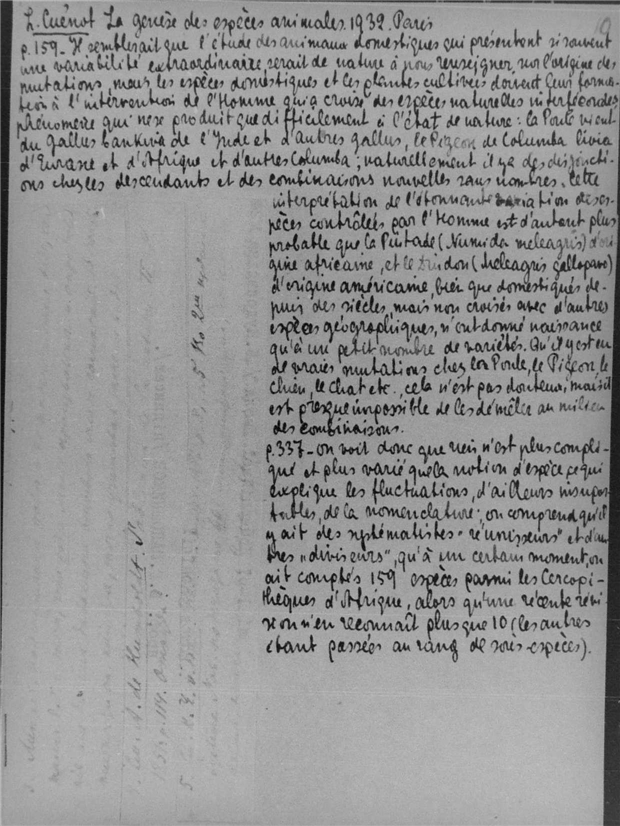 L. Cuénot La genèse des espèces animales. 1932. Paris
p. 159 - Il semblerait que l'étude des animaux domestiques qui présentent si souvent
une variabilité extraordinaire, serait de nature à nous renseigner sur l'origine des
mutations, mais les espèces domestiques et les plantes cultivées doivent leur forma-
tion à l'intervention de l'Homme qui a croisé des espèces naturelles interfécondes,
phénomène qui ne se produit que difficilement à l'état de nature: la Poule vient
du Gallus bankiva de l'Inde et d'autres gallus, le Pigeon de Columba livia
d'Eurasie et d'Afrique et d'autres Columba; naturellement il y a des disjoncti-
ons chez les descendants et des combinaisons nouvelles sans nombres. Cette
interprétation de l'étonnante variation des es-
pèces contrôlées par l'Homme est d'autant plus
probable que la Pintade (Numida meleagris) d'ori
gine africaine, et le Dindon (Meleagris gallopavo)
d'origine américaine, bien que domestiqués de-
puis des siècles, mais non croisés avec d'autres
espèces géographiques, n'ont donné naissance
qu'à un petit nombre de variétés. Qu'il y est eu
de vraies mutations chez la Poule, le Pigeon, le
Chien, le Chat etc., cela n'est pas douteux, mais il
est presque impossible de les démêler au milieu
des combinaisons.
p. 337 - on voit donc que rien n'est plus compli-
qué et plus varié que la notion d'espèce, ce qui
explique les fluctuations, d'ailleurs insuppor-
tables, de la nomenclature; on comprend qu'il
y ait des systématistes "réunisseurs" et d'au
tres "diviseurs", qu'à un certain moment, on
ait comptés 159 espèces parmi les Cercopi-
thèques d'Afrique, alors qu'une récente révi-
sion n'en reconnaît plus que 10 (les autres
étant passées au rang de sous-espèces).